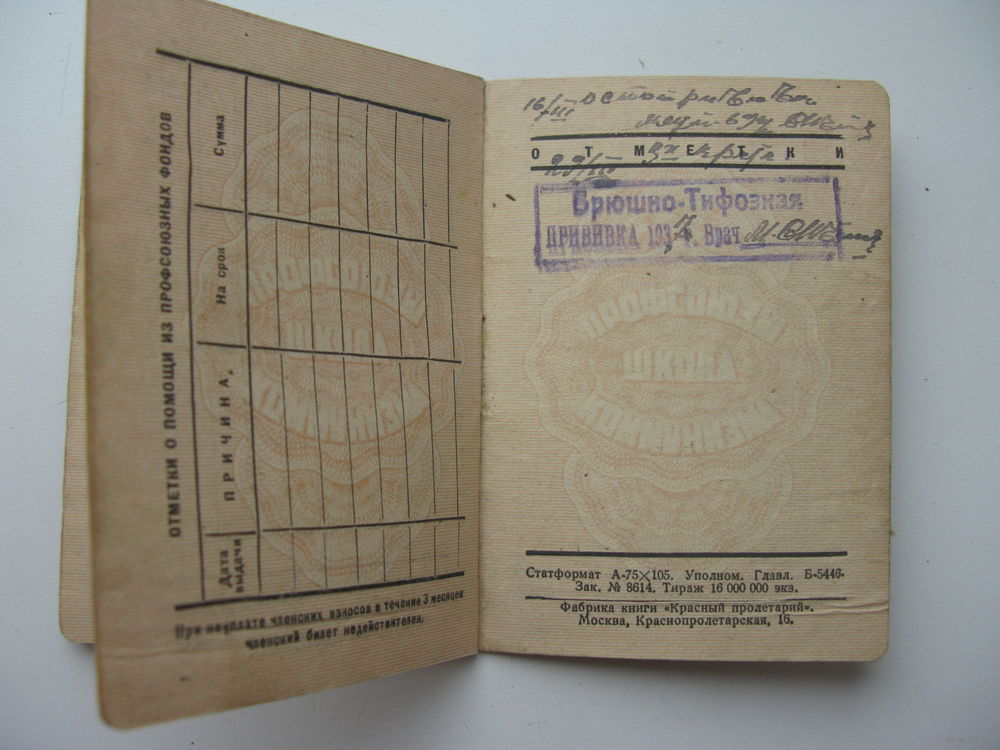 ОТМЕТКИ О ПОМОЩИ ИЗ ПРОФСОЮЗНЫХ ФОНДОВ
Дата выдачи
ПРИЧИНА
На срок
Сумма
При неуплате членских взносов в течение 3 месяцев
членский билет недействителен.
ПРОФСОЮЗЫ
ШКОЛА
КОММУНИЗМА
16/III
ОТМЕТКИ
Брюшно-Тифозная
ПРИВИВКА 193 г. Врач
ПРОФСОЮЗЫ
ШКОЛА
КОММУНИЗМА
Статформат А-75×105. Уполном. Главл. Б-5446.
Зак. № 8614. Тираж 16 000 000 экз.
Фабрика книги «Красный пролетарий».
Москва, Краснопролетарская, 16.